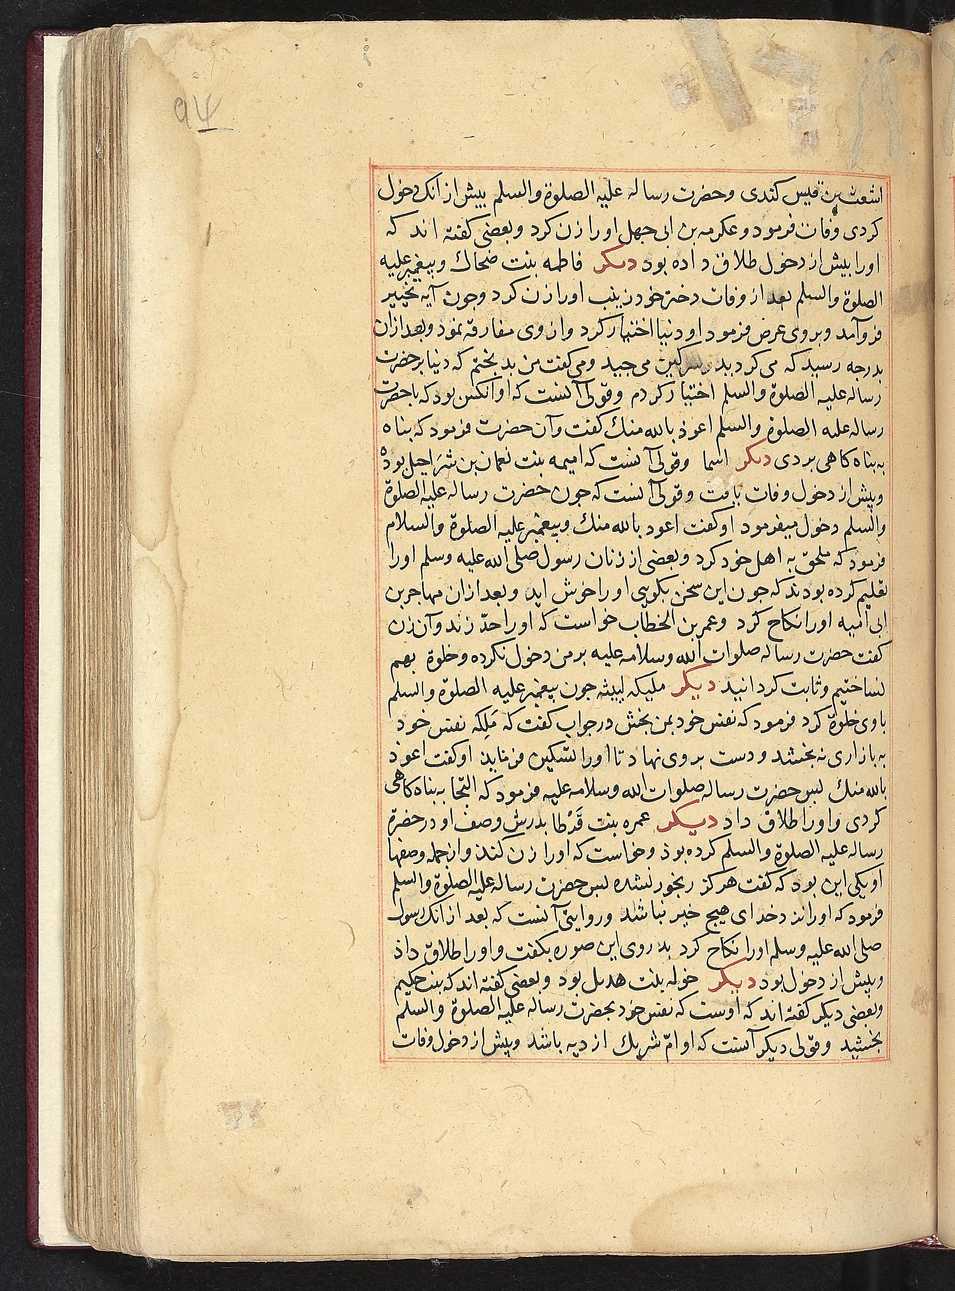 ۹۴
اشعث بن قیس کندی وحضرت رساله علیه الصلوة والسلم بیش از انک دخول
کردی وفات فرمود وعکرمه بن ابی جهل اورا زن کرد وبعضی کفته اند که
اورا بیش از دخول طلاق داده بود دیکر فاطمه بنت ضحاك وبیغمبر علیه
الصلوة والسلم بعد از وفات دختر خود زینب اورا زن کرد وجون آیه تخییر
فروآمد وبروی عرض فرمود او دنیا اختیار کرد واز وی مفارقه نمود وبعد ازان
بدرجه رسید که می کردید وسرکین می جید ومی کفت من بدبختم که دنیا بر حضرت
رساله علیه الصلوة والسلم اختیار کردم وقولی آنست که او انکس بود که با حضرت
رساله علیه الصلوة والسلم اعوذ بالله منك کفت وآن حضرت فرمود که بناه
به بناه کاهی بردی دیکر اسما وقولی آنست که امیمه بنت نعمان بن شراحیل بوده
وبیش از دخول وفات یافت وقولی آنست که جون حضرت رساله علیه الصلوة
والسلم دخول میفرمود او کفت اعوذ بالله منك وبیغمبر علیه الصلوة والسلام
فرمود که ملحق به اهل خود کرد وبعضی از زنان رسول صلی الله علیه وسلم اورا
تعلیم کرده بودند که جون این سخن بکویی اورا خوش اید وبعد ازان مهاجر بن
ابی امیه اورا نکاح کرد وعمر بن الخطاب خواست که اورا حدّ زند وآن زن
کفت حضرت رساله صلوات الله وسلامه علیه بر من دخول نکرده وخلوة بهم
نساختیم وثابت کردانید دیکر ملیکه لیثیه جون بیغمبر علیه الصلوة والسلم
باوی خلوة کرد فرمود که نفس خود بمن بخش در جواب کفت که ملکه نفس خود
به بازاری نه بخشد ودست بر وی نهاد تا اورا تسکین فرماید او کفت اعوذ
بالله منك بس حضرت رساله صلوات الله وسلامه علیه فرمود که التجا به بناه کاهی
کردی واورا طلاق داد دیکر عمره بنت قرطا بدرش وصف او در حضرة
رساله علیه الصلوة والسلم کرده بود وخواست که اورا زن کند واز جمله وصفها
او یکی این بود که کفت هرکز رنجور نشده بس حضرت رساله علیه الصلوة والسلم
فرمود که اورا نزد خدای هیج خیر نباشد وروایتی آنست که بعد از انک رسول
صلی الله علیه وسلم اورا نکاح کرد بدر وی این صوره بکفت واورا طلاق داد
وبیش از دخول بود دیکر خوله بنت هدیل بود وبعضی کفته اند که بنت حکیم
وبعضی دیکر کفته اند که اوست که نفس خود بحضرت رساله علیه الصلوة والسلم
بخشید وقولی دیکر آنست که او امّ شریك ازدیه باشد وبیش از دخول وفات